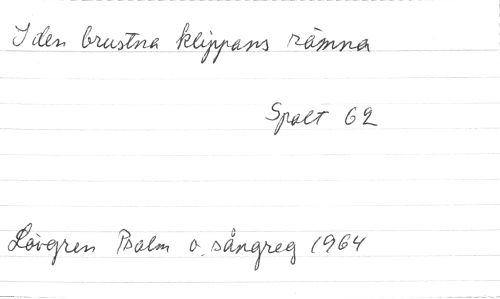 I den brustna klippans rämna
Spalt 62
Lövgren Psalm o. sångreg 1964